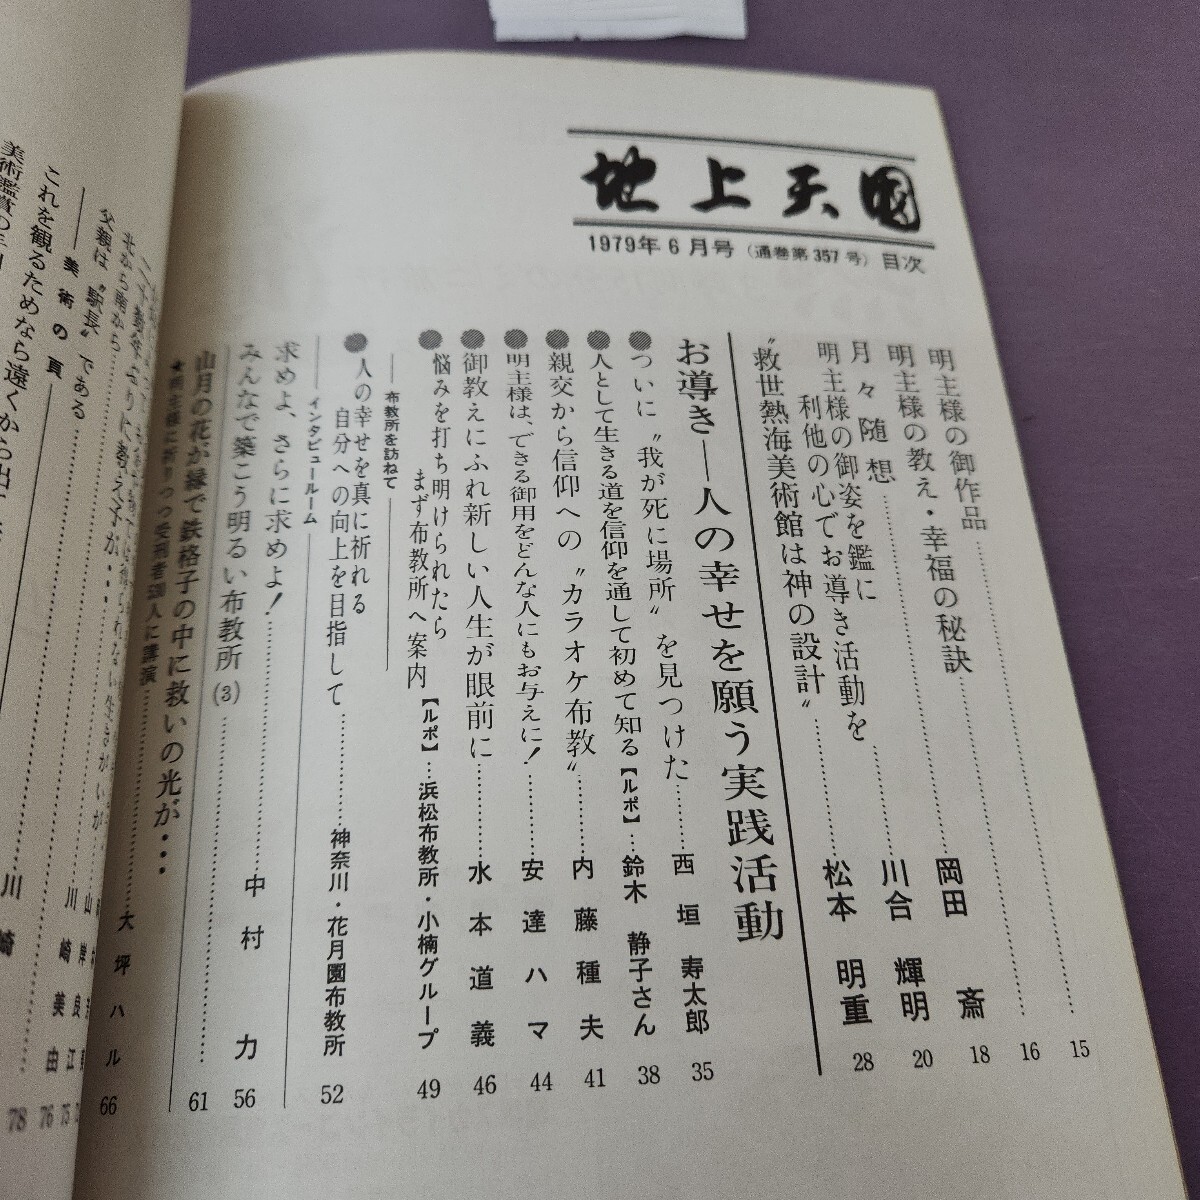 地上天国
1979年6月号（通巻第357号）目次
明主様の御作品……15
明主様の教え・幸福の秘訣……16
月々随想……岡田 斎 18
明主様の御姿を鑑に
利他の心でお導き活動を……川合 輝明 20
〝救世熱海美術館は神の設計〟……松本 明重 28
お導き―人の幸せを願う実践活動
●ついに〝我が死に場所〟を見つけた……西垣 寿太郎 35
●人として生きる道を信仰を通して初めて知る【ルポ】…鈴木 静子さん 38
●親交から信仰への〝カラオケ布教〟……内藤種夫 41
●明主様は、できる御用をどんな人にもお与えに！……安達ハマ 44
●御教えにふれ新しい人生が眼前に……水本道義 46
●悩みを打ち明けられたら
まず布教所へ案内【ルポ】…浜松布教所・小楠グループ 49
――布教所を訪ねて――
●人の幸せを真に祈れる
自分への向上を目指して……神奈川・花月園布教所 52
――インタビュールーム――
求めよ、さらに求めよ！
みんなで築こう明るい布教所(3)……中村 力 56
山月の花が縁で鉄格子の中に救いの光が・・・ 61
大坪ハル 66
北から南から
父親は〝駅長〟である……川崎美由 76
――美術の頁――
これを観るためなら遠くから
川崎
78